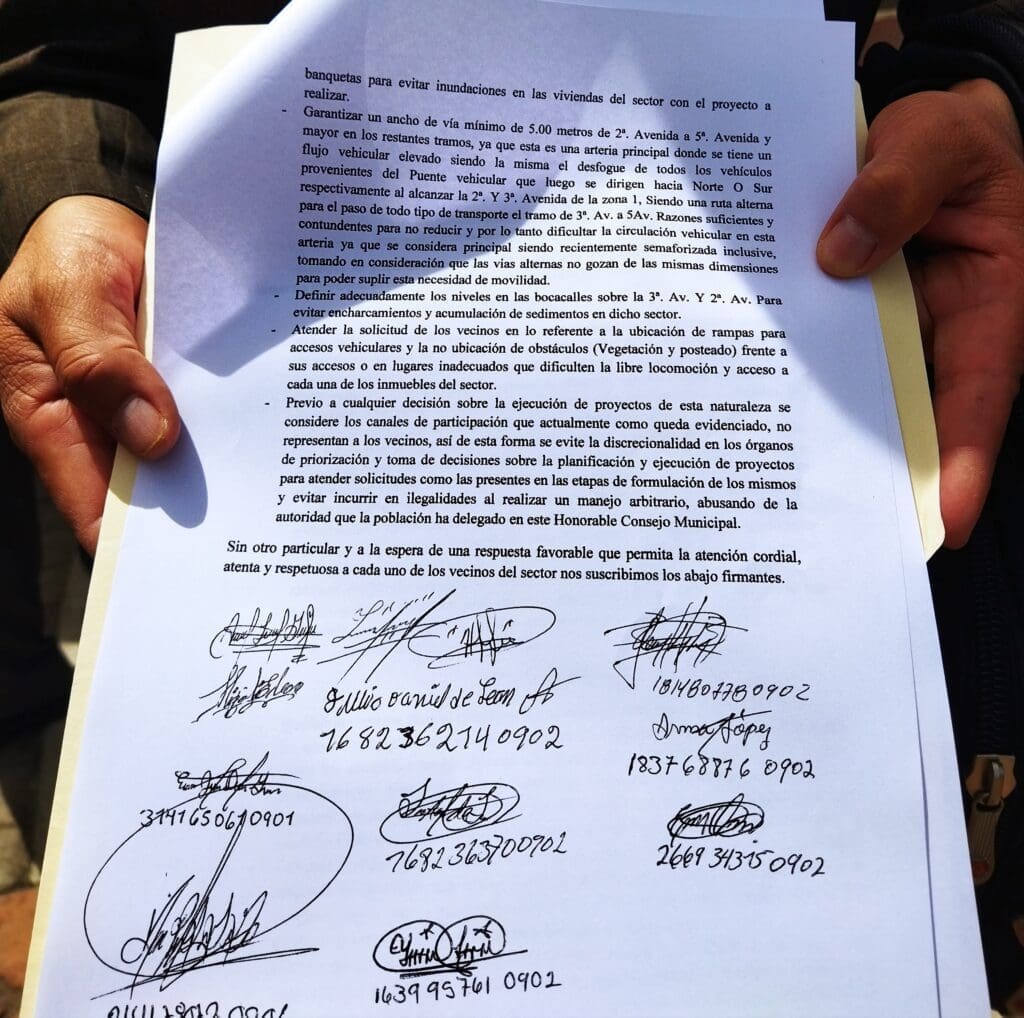 banquetas para evitar inundaciones en las viviendas del sector con el proyecto a
realizar.
- Garantizar un ancho de vía mínimo de 5.00 metros de 2ª. Avenida a 5ª. Avenida y
mayor en los restantes tramos, ya que esta es una arteria principal donde se tiene un
flujo vehicular elevado siendo la misma el desfogue de todos los vehículos
provenientes del Puente vehicular que luego se dirigen hacia Norte O Sur
respectivamente al alcanzar la 2ª. Y 3ª. Avenida de la zona 1, Siendo una ruta alterna
para el paso de todo tipo de transporte el tramo de 3ª. Av. a 5Av. Razones suficientes y
contundentes para no reducir y por lo tanto dificultar la circulación vehicular en esta
arteria ya que se considera principal siendo recientemente semaforizada inclusive,
tomando en consideración que las vias alternas no gozan de las mismas dimensiones
para poder suplir esta necesidad de movilidad.
- Definir adecuadamente los niveles en las bocacalles sobre la 3ª. Av. Y 2ª. Av. Para
evitar encharcamientos y acumulación de sedimentos en dicho sector.
- Atender la solicitud de los vecinos en lo referente a la ubicación de rampas para
accesos vehiculares y la no ubicación de obstáculos (Vegetación y posteado) frente a
sus accesos o en lugares inadecuados que dificulten la libre locomoción y acceso a
cada una de los inmuebles del sector.
- Previo a cualquier decisión sobre la ejecución de proyectos de esta naturaleza se
considere los canales de participación que actualmente como queda evidenciado, no
representan a los vecinos, así de esta forma se evite la discrecionalidad en los órganos
de priorización y toma de decisiones sobre la planificación y ejecución de proyectos
para atender solicitudes como las presentes en las etapas de formulación de los mismos
y evitar incurrir en ilegalidades al realizar un manejo arbitrario, abusando de la
autoridad que la población ha delegado en este Honorable Consejo Municipal.
Sin otro particular y a la espera de una respuesta favorable que permita la atención cordial,
atenta y respetuosa a cada uno de los vecinos del sector nos suscribimos los abajo firmantes.
Daniel de Leon
1682362140902
López
183768876 0902
1682363700902
2669343150902
163995761 0902